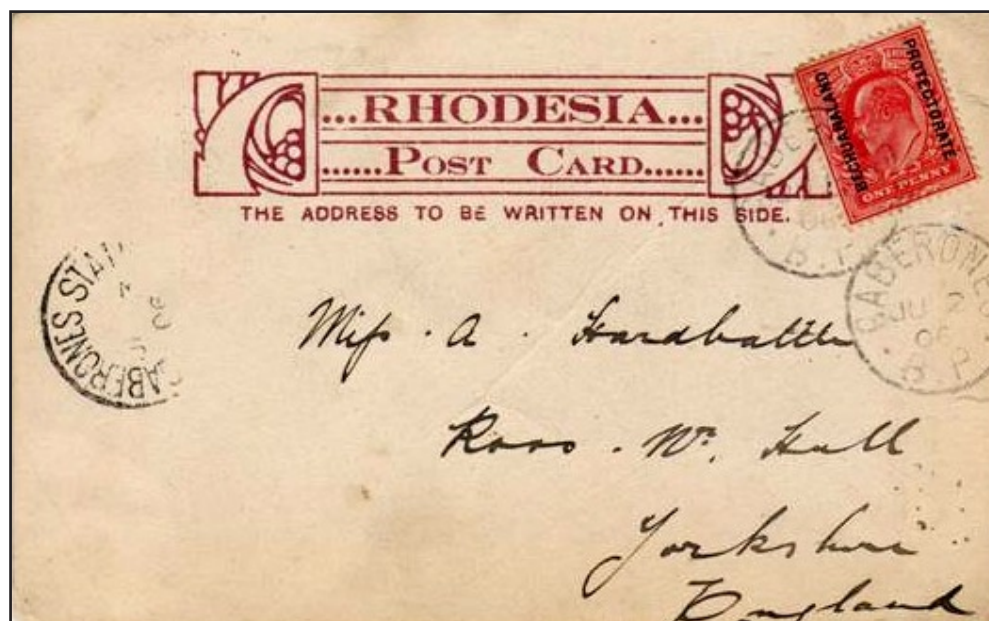 ...RHODESIA...
......POST CARD......
THE ADDRESS TO BE WRITTEN ON THIS SIDE.
BECHUANALAND
PROTECTORATE
ONE PENNY
GABERONES
JU 2
06
B.P
GABERONES STAT
Miss . A . Hardbattle
Roos . Nr. Hull
Yorkshire
England